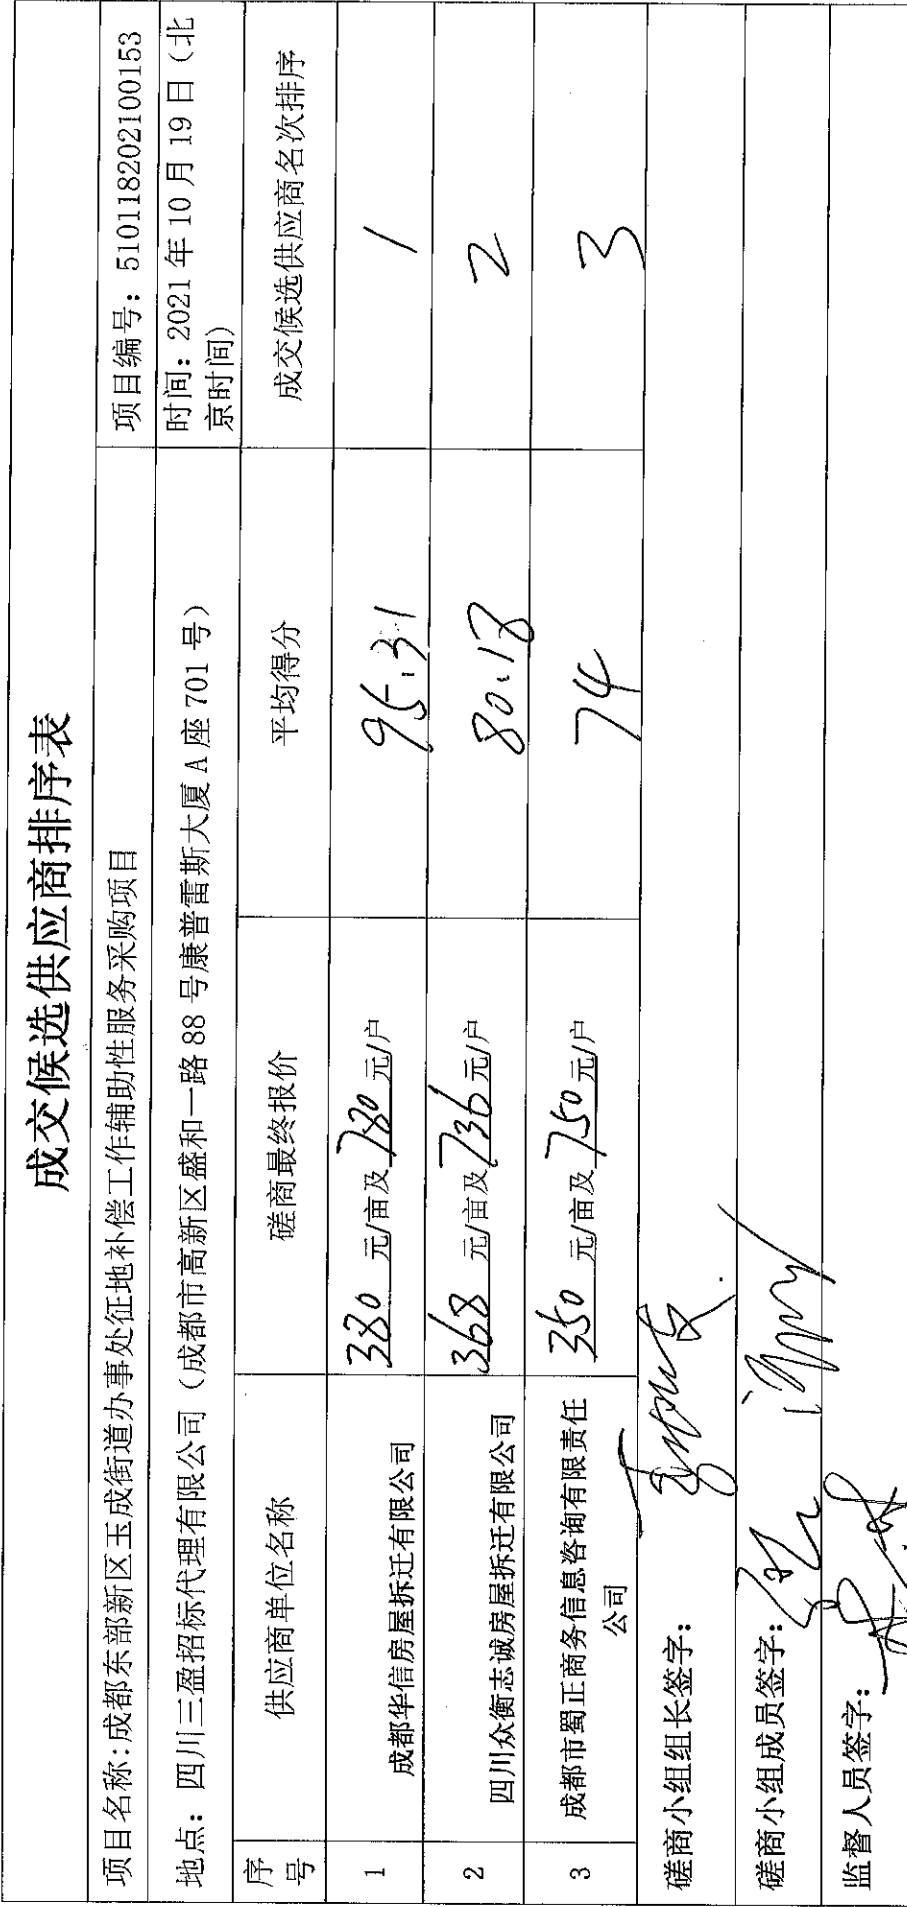 成交候选供应商排序表
项目名称:成都东部新区玉成街道办事处征地补偿工作辅助性服务采购项目 项目编号：510118202100153
地点：四川三盈招标代理有限公司（成都市高新区盛和一路88号康普雷斯大厦A座701号） 时间：2021年10月19日（北
京时间）
序号 供应商单位名称 磋商最终报价 平均得分 成交候选供应商名次排序
1 成都华信房屋拆迁有限公司 380 元/亩及 780 元/户 95.31 1
2 四川众衡志诚房屋拆迁有限公司 368 元/亩及 736 元/户 80.18 2
3 成都市蜀正商务信息咨询有限责任 350 元/亩及 750 元/户 74 3
公司
磋商小组组长签字：
磋商小组成员签字：
监督人员签字：